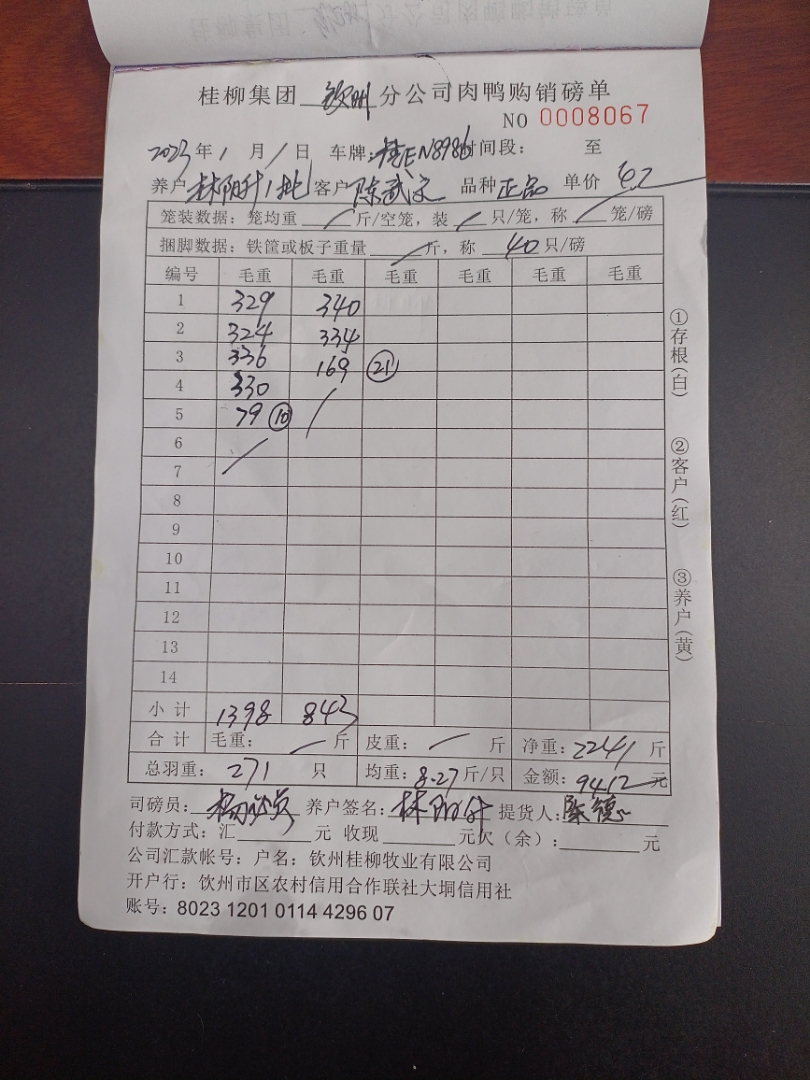 桂柳集团 钦州 分公司肉鸭购销磅单
NO 0008067
2023 年 1 月 1 日 车牌:桂EN8986 时间段: 至
养户 林阳升1批 客户 陈武文 品种 正品 单价 4.2
笼装数据: 笼均重 / 斤/空笼, 装 / 只/笼, 称 / 笼/磅
捆脚数据: 铁筐或板子重量 / 斤, 称 40 只/磅
编号 毛重 毛重 毛重 毛重 毛重 毛重
1 329 340
2 324 334
3 336 169 ㉑
4 330 /
5 79 ⑩
6 /
7
8
9
10
11
12
13
14
小计 1398 843
合计 毛重: / 斤 皮重: / 斤 净重: 2241 斤
总羽重: 271 只 均重: 8.27 斤/只 金额: 9412 元
司磅员: 养户签名: 林阳升 提货人: 陈德
付款方式: 汇 元 收现 元欠(余): 元
公司汇款帐号: 户名: 钦州桂柳牧业有限公司
开户行: 钦州市区农村信用合作联社大垌信用社
账号: 8023 1201 0114 4296 07
①存根(白)
②客户(红)
③养户(黄)